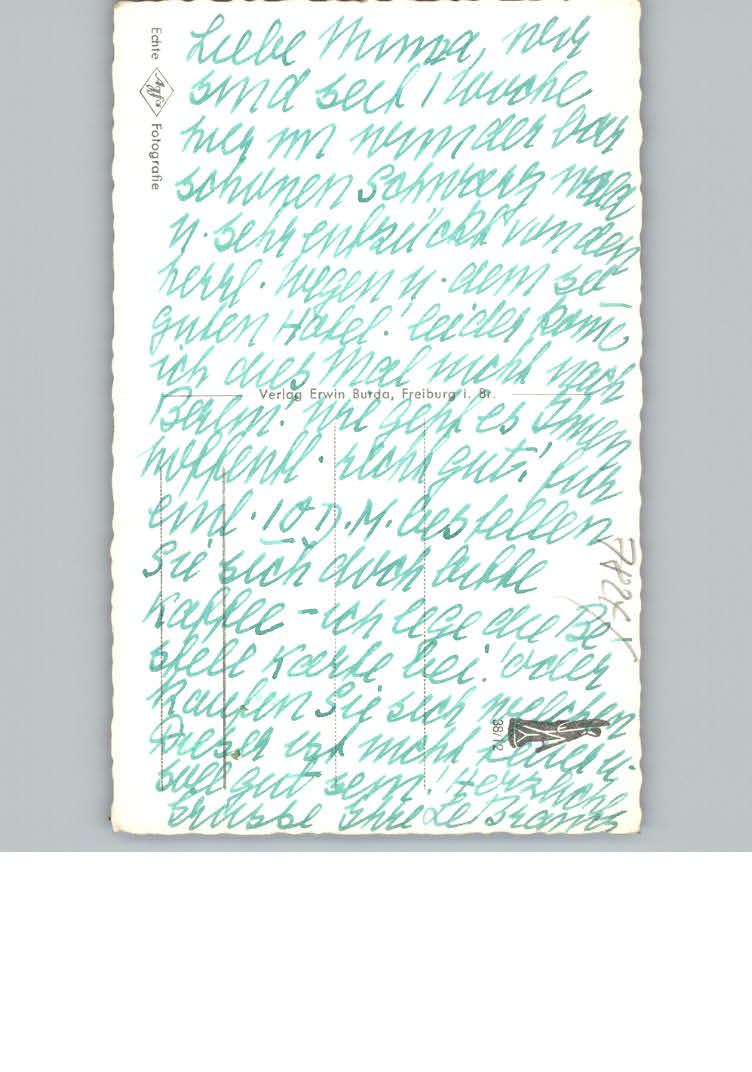 Liebe Minna, wir
sind seit 1 Woche
hier im wunderbar
schönen Schwarzwald
u. sehr entzückt von den
herrl. Wegen u. dem se
guten Hotel. Leider komme
ich dies Mal nicht nach
Berlin! Wie geht es Ihnen
hoffentl. recht gut! Für
einl. 10 D.M. bestellen
Sie sich doch bitte
Kaffee - ich lege die Be
stell Karte bei! oder
kaufen Sie sich welchen
Dieser ist nicht teuer u.
soll gut sein! Herzliche
Grüsse Ihre
Echte Agfa Fotografie
Verlag Erwin Burda, Freiburg i. Br.
38/12